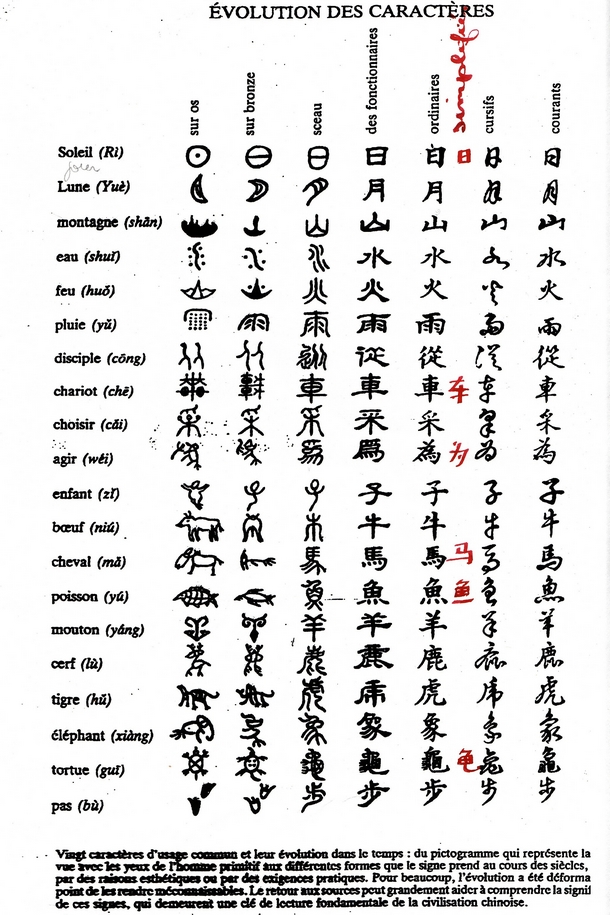 ÉVOLUTION DES CARACTÈRES
sur os sur bronze sceau des fonctionnaires ordinaires simplifié cursifs courants
Soleil (Rì) 日 日 日 日 日 日
jour
Lune (Yuè) 月 月 月 月
montagne (shān) 山 山 山 山 山
eau (shuǐ) 水 水 水 水
feu (huǒ) 火 火 火 火
pluie (yǔ) 雨 雨 雨 雨 雨
disciple (cōng) 從 從 從
chariot (chē) 車 車 車 车 车 車
choisir (cǎi) 采 采 采 采
agir (wéi) 爲 為 为 为 為
enfant (zǐ) 子 子 子 子
bœuf (niú) 牛 牛 牛 牛
cheval (mǎ) 馬 馬 馬 马 馬
poisson (yú) 魚 魚 鱼 魚
mouton (yáng) 羊 羊 羊 羊 羊
cerf (lù) 鹿 鹿 鹿
tigre (hǔ) 虎 虎 虎
éléphant (xiàng) 象 象 象 象
tortue (guī) 龜 龜 龟 龜
pas (bù) 步 步 步 步
Vingt caractères d'usage commun et leur évolution dans le temps : du pictogramme qui représente la
vue avec les yeux de l'homme primitif aux différentes formes que le signe prend au cours des siècles,
par des raisons esthétiques ou par des exigences pratiques. Pour beaucoup, l'évolution a été déforma
point de les rendre méconnaissables. Le retour aux sources peut grandement aider à comprendre la signif
de ces signes, qui demeurent une clé de lecture fondamentale de la civilisation chinoise.